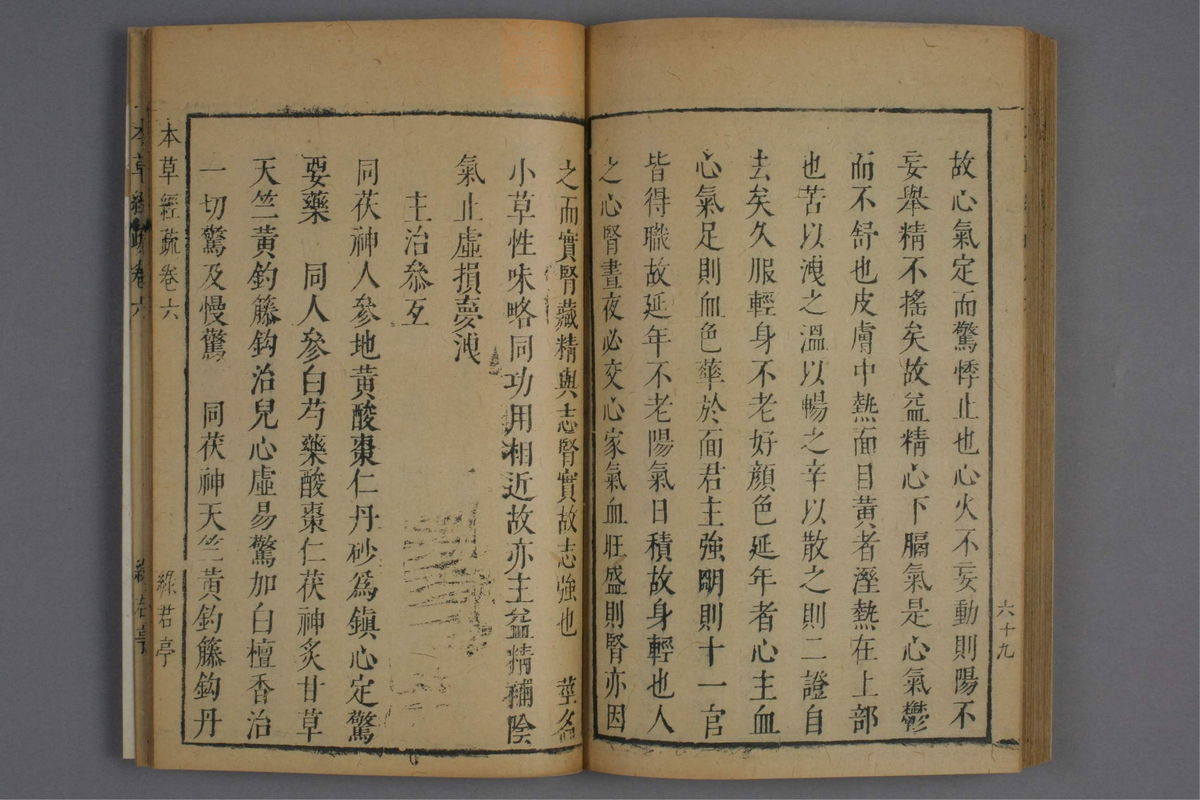 故心氣定而驚悸止也心火不妄動則陽不
妄舉精不搖矣故益精心下膈氣是心氣鬱
而不舒也皮膚中熱面目黃者溼熱在上部
也苦以洩之溫以暢之辛以散之則二證自
去矣久服輕身不老好顏色延年者心主血
心氣足則血色華於面君主強朙則十一官
皆得職故延年不老陽氣日積故身輕也人
之心腎晝夜必交心家氣血旺盛則腎亦因
六十九
之而實腎藏精與志腎實故志強也 莖名
小草性味略同功用相近故亦主益精補陰
氣止虛損夢洩
主治叅互
同茯神人參地黃酸棗仁丹砂爲鎮心定驚
要藥 同人參白芍藥酸棗仁茯神炙甘草
天竺黃釣籐鈎治兒心虛易驚加白檀香治
一切驚及慢驚 同茯神天竺黃釣籐鈎丹
本草經疏卷六
綠君亭
本草經疏卷六
綠君亭